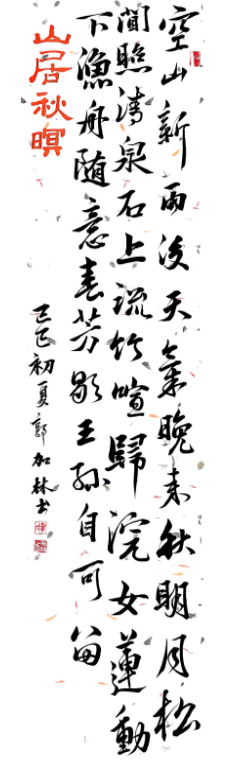 空山新雨後天氣晚来秋明月松
間照清泉石上流竹喧歸浣女蓮動
下漁舟随意春芳歇王孫自可留
山居秋暝
乙巳初夏郭加林书